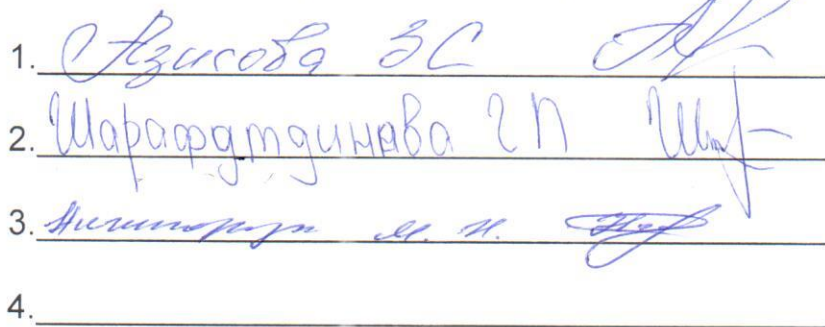 1. Азисова ЗС
2. Шарафдтдинава ГП
3. М. Н.
4.